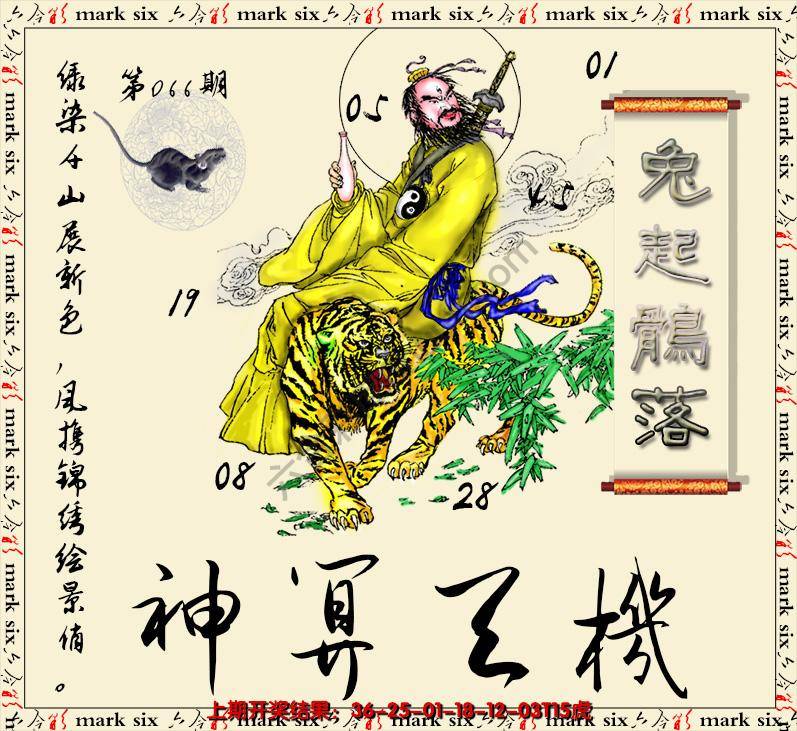 mark six 六合彩 mark six 六合彩 mark six 六合彩 mark six 六合彩 mark six
第066期
绿染千山展新色,风携锦绣绘景俏。
05
01
45
19
08
28
兔起鶻落
神算天機
上期开奖结果:36-25-01-18-12-03T15虎